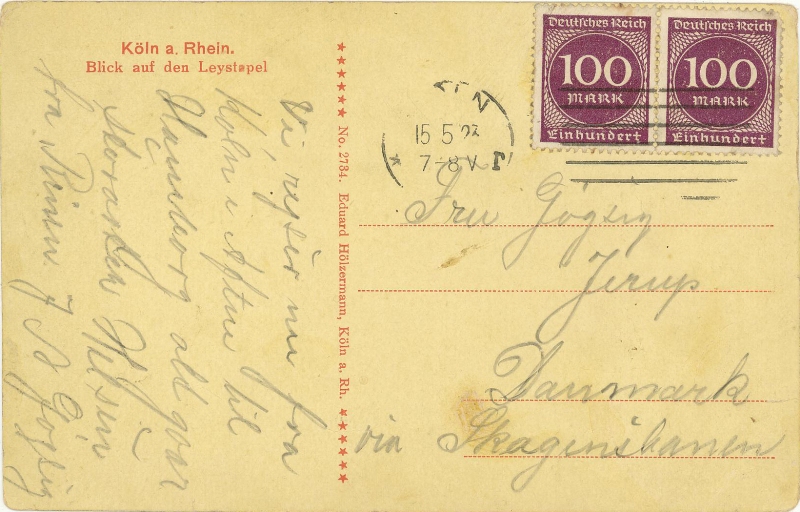 Köln a. Rhein.
Blick auf den Leystapel
Vi rejser nu fra
Köln i Aften til
Hamborg alt gaar
storartet Hilsen
fra J B Gögsig
No. 2734. Eduard Hölzermann, Köln a. Rh.
15 5 23
7-8 V
Deutsches Reich
100
MARK
Einhundert
Deutsches Reich
100
MARK
Einhundert
Fru Gögsig
Jerup
Danmark
via Skagensbanen